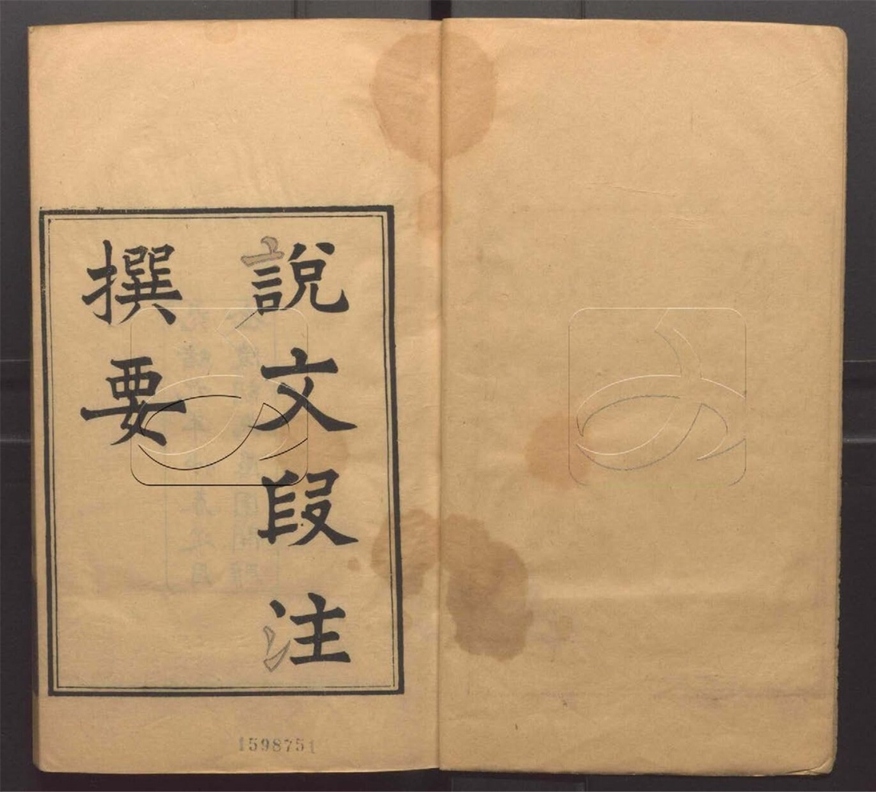 說文段注
撰要
1598751